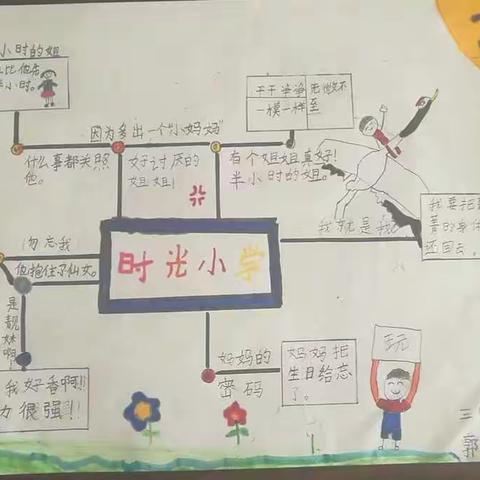 小时的姐
比他先
半小时。
因为多出一个“小妈妈”
什么事都关照
他。
好讨厌的
姐姐!
有个姐姐真好!
半小时的姐。
干干净净
一模一样
无微不
至
我就是我
我要把
菁的身体
还回去。
时光小学
勿忘我
他抱住了仙女。
是靓妹啊!
我好香啊!!
力很强!!
妈妈的
密码
妈妈把
生日给忘
了。
玩
三
郭